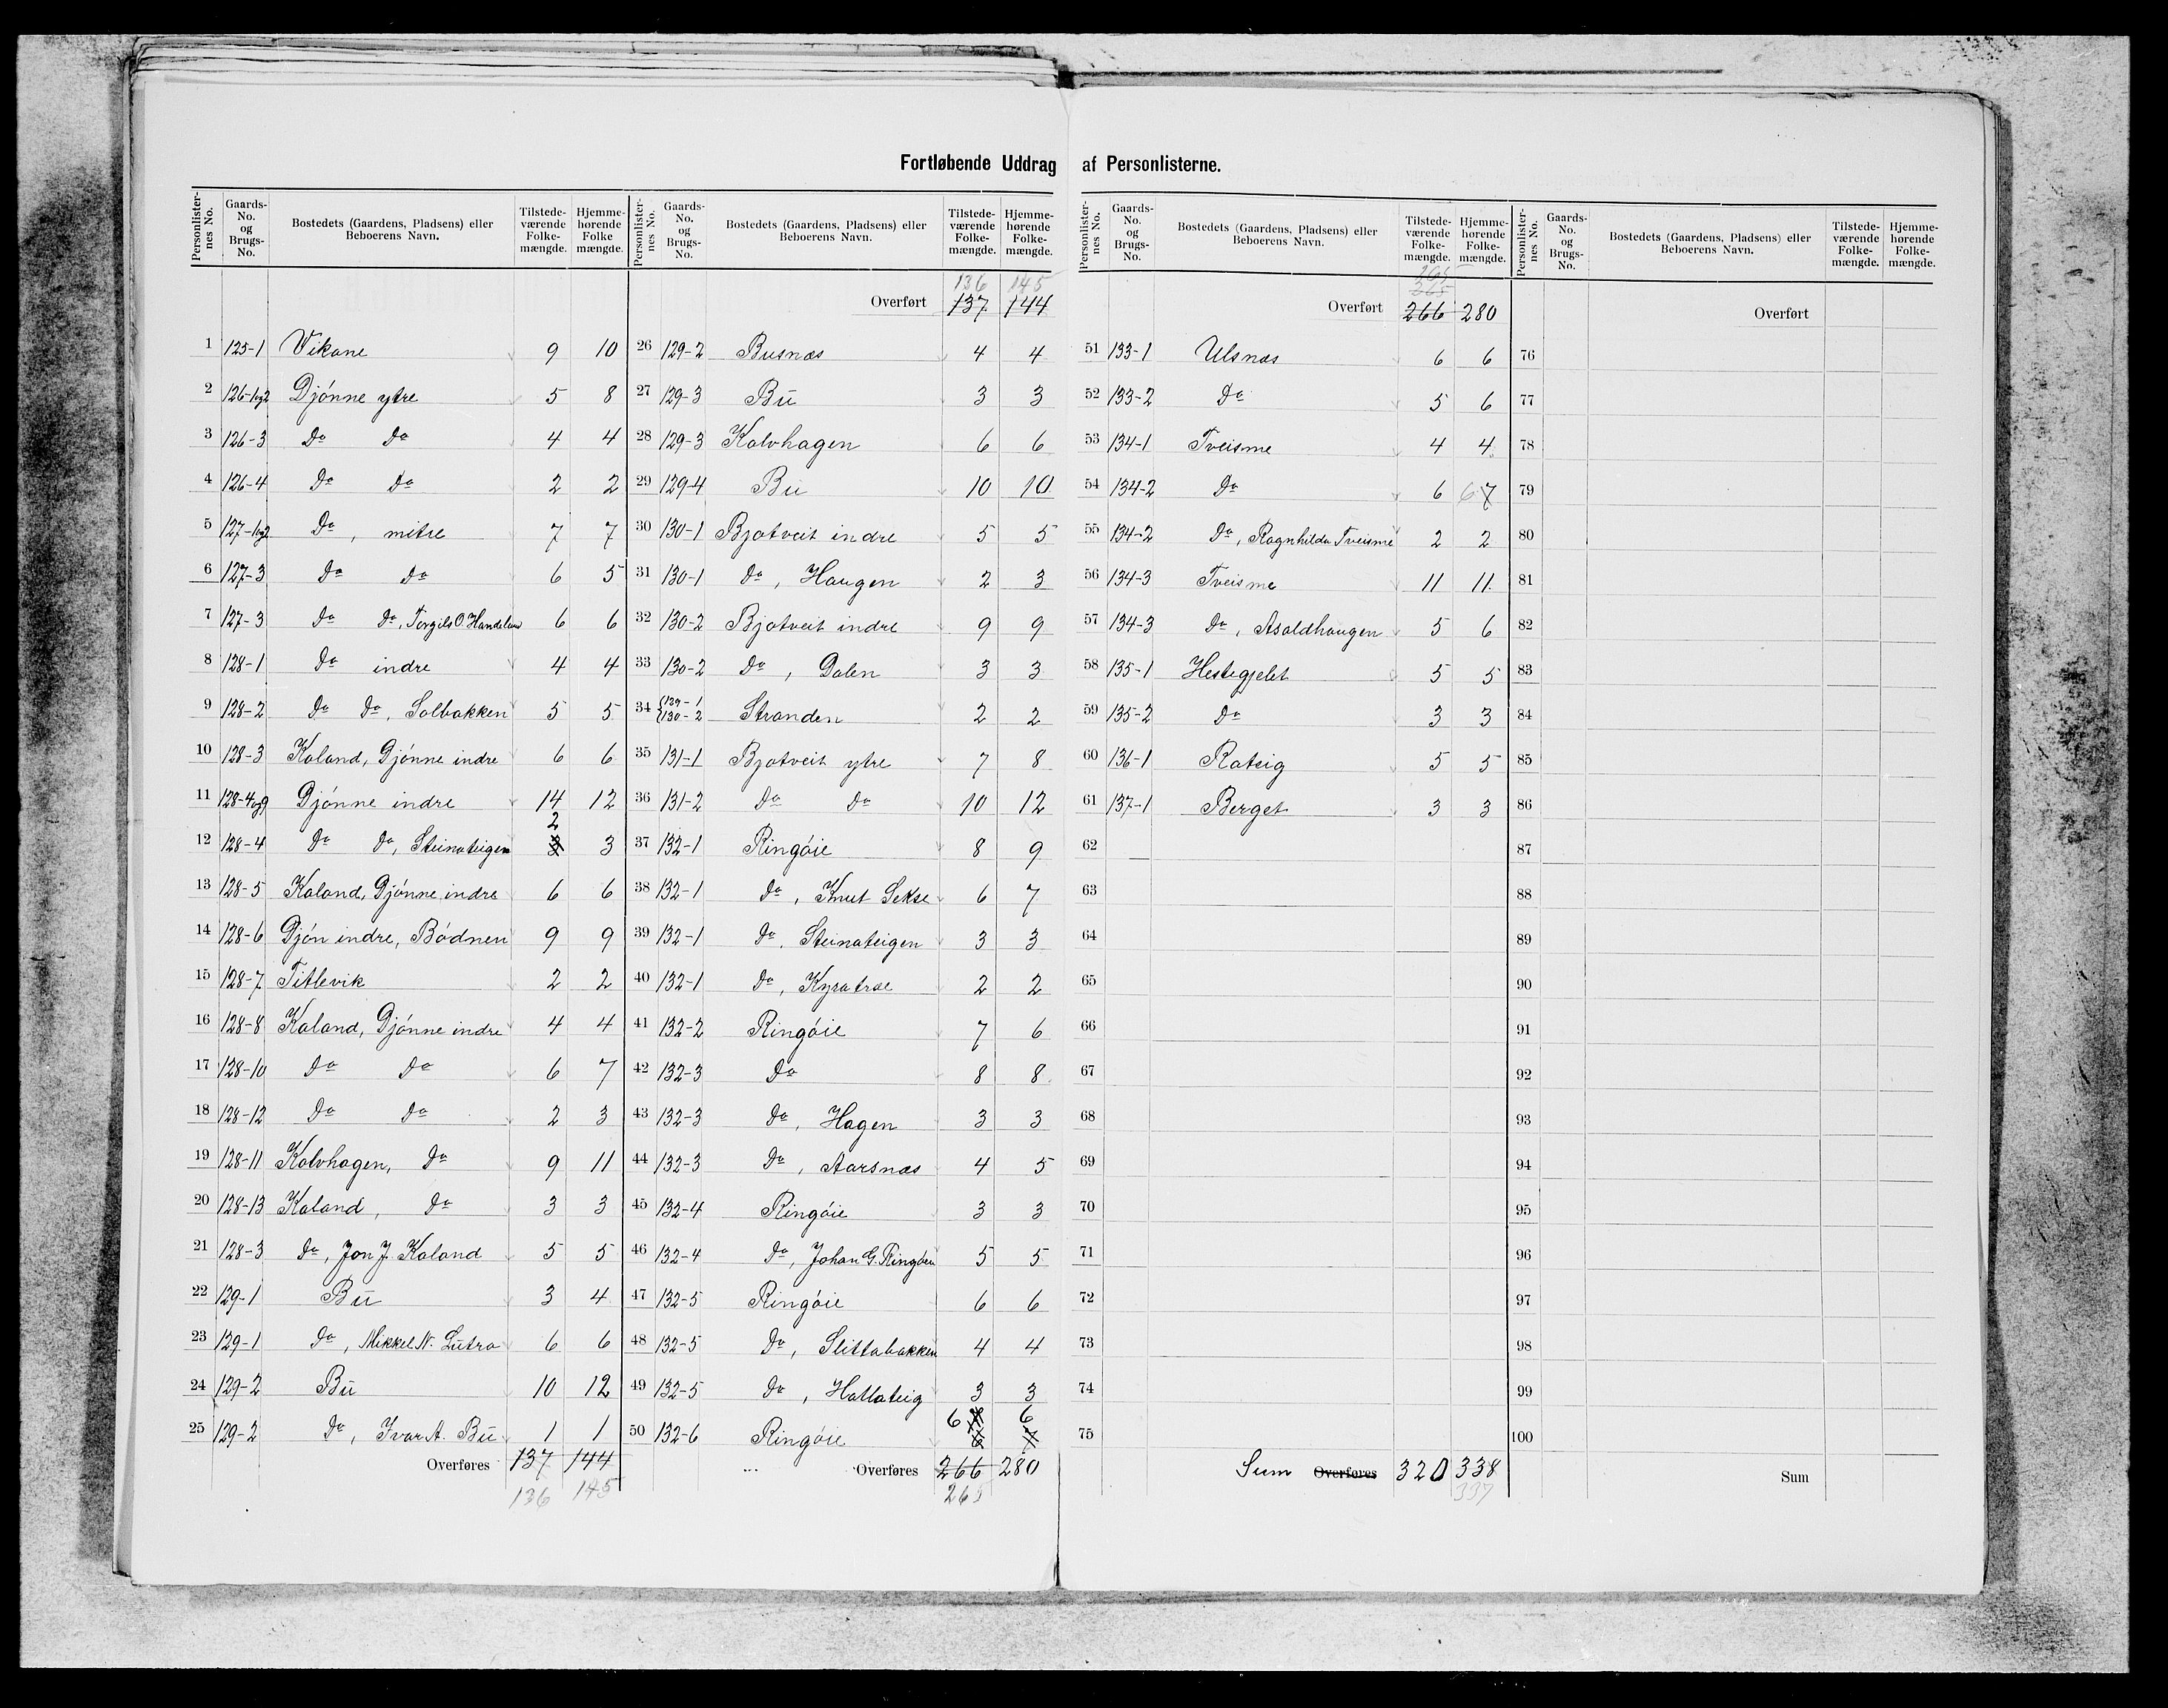 Fortløbende Uddrag af Personlisterne.
Personlister-nes No. | Gaards-No. og Brugs-No. | Bostedets (Gaardens, Pladsens) eller Beboerens Navn. | Tilstede-værende Folke-mængde. | Hjemme-hørende Folke mængde.
1 125-1 Vikane 9 10
2 126-1og2 Djönne ytre 5 8
3 126-3 Do Do 4 4
4 126-4 Do Do 2 2
5 127-1og2 Do, mitre 7 7
6 127-3 Do Do 6 5
7 127-3 Do Do, Torgils O. Handeland 6 6
8 128-1 Do indre 4 4
9 128-2 Do Do, Solbakken 5 5
10 128-3 Kaland, Djönne indre 6 6
11 128-4og9 Djönne indre 14 12
12 128-4 Do Do, Steinateigen 2 3 3
13 128-5 Kaland, Djönne indre 6 6
14 128-6 Djön indre, Bödnen 9 9
15 128-7 Titlevik 2 2
16 128-8 Kaland, Djönne indre 4 4
17 128-10 Do Do 6 7
18 128-12 Do Do 2 3
19 128-11 Kalvhagen, Do 9 11
20 128-13 Kaland, Do 3 3
21 128-3 Do, Jon J. Kaland 5 5
22 129-1 Bü 3 4
23 129-1 Do, Mikkel N. Lütro 6 6
24 129-2 Bü 10 12
25 129-2 Do, Ivar A. Bü 1 1
Overføres 137 144
136 145
Personlister-nes No. | Gaards-No. og Brugs-No. | Bostedets (Gaardens, Pladsens) eller Beboerens Navn. | Tilstede-værende Folke-mængde. | Hjemme-hørende Folke-mængde.
136 145
Overført 137 144
26 129-2 Busnæs 4 4
27 129-3 Bü 3 3
28 129-3 Kalvhagen 6 6
29 129-4 Bü 10 10
30 130-1 Bjotveit indre 5 5
31 130-1 Do, Haugen 2 3
32 130-2 Bjotveit indre 9 9
33 130-2 Do, Dalen 3 3
34 129-1 130-2 Stranden 2 2
35 131-1 Bjotveit ytre 7 8
36 131-2 Do Do 10 12
37 132-1 Ringöie 8 9
38 132-1 Do, Knut Sekse 6 7
39 132-1 Do, Steinateigen 3 3
40 132-1 Do, Kyratræ 2 2
41 132-2 Ringöie 7 6
42 132-3 Do 8 8
43 132-3 Do, Hagen 3 3
44 132-3 Do, Aarsnæs 4 5
45 132-4 Ringöie 3 3
46 132-4 Do, Johan G. Ringöen 5 5
47 132-5 Ringöie 6 6
48 132-5 Do, Slittabakken 4 4
49 132-5 Do, Hallateig 3 3
50 132-6 Ringöie 6 6 6 7
Overføres 266 280
265
Personlister-nes No. | Gaards-No. og Brugs-No. | Bostedets (Gaardens, Pladsens) eller Beboerens Navn. | Tilstede-værende Folke-mængde. | Hjemme-hørende Folke-mængde.
265
265
Overført 266 280
51 133-1 Ulsnæs 6 6
52 133-2 Do 5 6
53 134-1 Tveisme 4 4
54 134-2 Do 6 6 7
55 134-2 Do, Ragnhilda Tveisme 2 2
56 134-3 Tveisme 11 11
57 134-3 Do, Asaldhaugen 5 6
58 135-1 Hestegjelet 5 5
59 135-2 Do 3 3
60 136-1 Rateig 5 5
61 137-1 Berget 3 3
62
63
64
65
66
67
68
69
70
71
72
73
74
75
Sum Overføres 320 338
337
Personlister-nes No. | Gaards-No. og Brugs-No. | Bostedets (Gaardens, Pladsens) eller Beboerens Navn. | Tilstede-værende Folke-mængde. | Hjemme-hørende Folke-mængde.
Overført
76
77
78
79
80
81
82
83
84
85
86
87
88
89
90
91
92
93
94
95
96
97
98
99
100
Sum